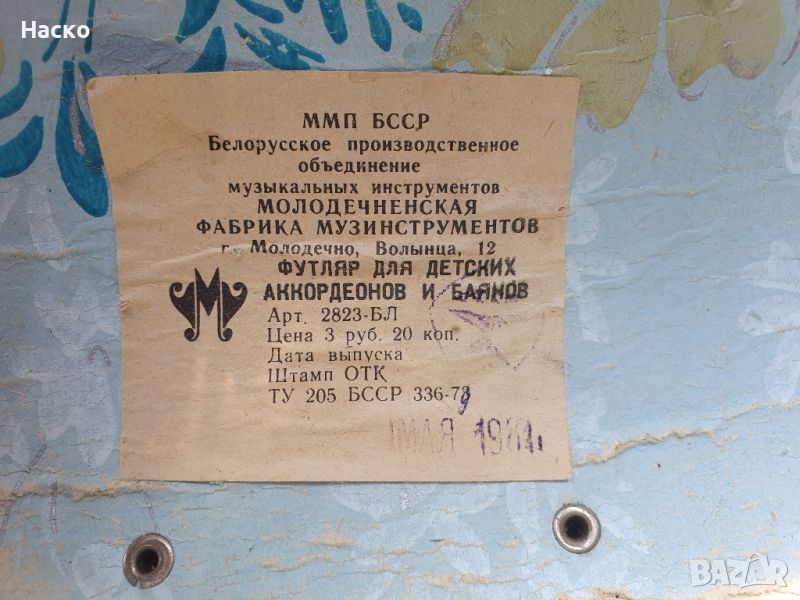 Наско
ММП БССР
Белорусское производственное
объединение
музыкальных инструментов
МОЛОДЕЧНЕНСКАЯ
ФАБРИКА МУЗИНСТРУМЕНТОВ
г. Молодечно, Волынца, 12
ФУТЛЯР ДЛЯ ДЕТСКИХ
АККОРДЕОНОВ И БАЯНОВ
М
Арт. 2823-БЛ
Цена 3 руб. 20 коп.
Дата выпуска
Штамп ОТК
ТУ 205 БССР 336-79
МАЯ 1981
BAZAR